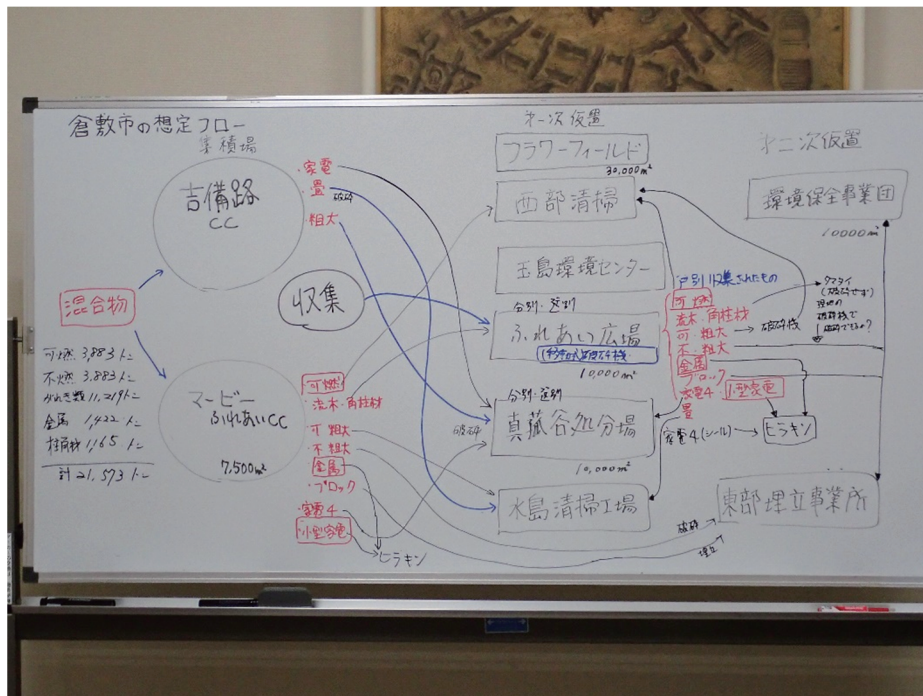 倉敷市の想定フロー
集積場
吉備路
CC
・家電
・畳
破砕
・粗大
混合物
収集
可燃 3,883トン
不燃 3,883トン
がれき類 11,219トン
金属 1,422トン
柱角材 1,165トン
計 21,573トン
マービー
ふれあいCC
7,500m²
可燃
・流木・角柱材
・可粗大
・不粗大
金属
・ブロック
・家電4
・小型家電
ヒラキン
第一次仮置
フラワーフィールド
30,000m²
西部清掃
玉島環境センター
分別・選別
ふれあい広場
(移動式)破砕機
10,000m²
分別・選別
破砕
真菰谷処分場
10,000m²
水島清掃工場
戸別収集されたもの
可燃
流木・角柱材
可・粗大
不・粗大
金属
ブロック
家電4
小型家電
畳
破砕機
家電4(シール)
ヒラキン
第二次仮置
環境保全事業団
10000m²
(破砕せず)
破砕機で
破砕できるか?
東部埋立事業所
破砕
埋立